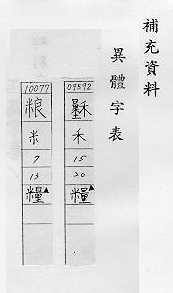 補充資料
異體字表
09592
禾
15
20
糧▲
10077
粮
米
7
13
糧▲